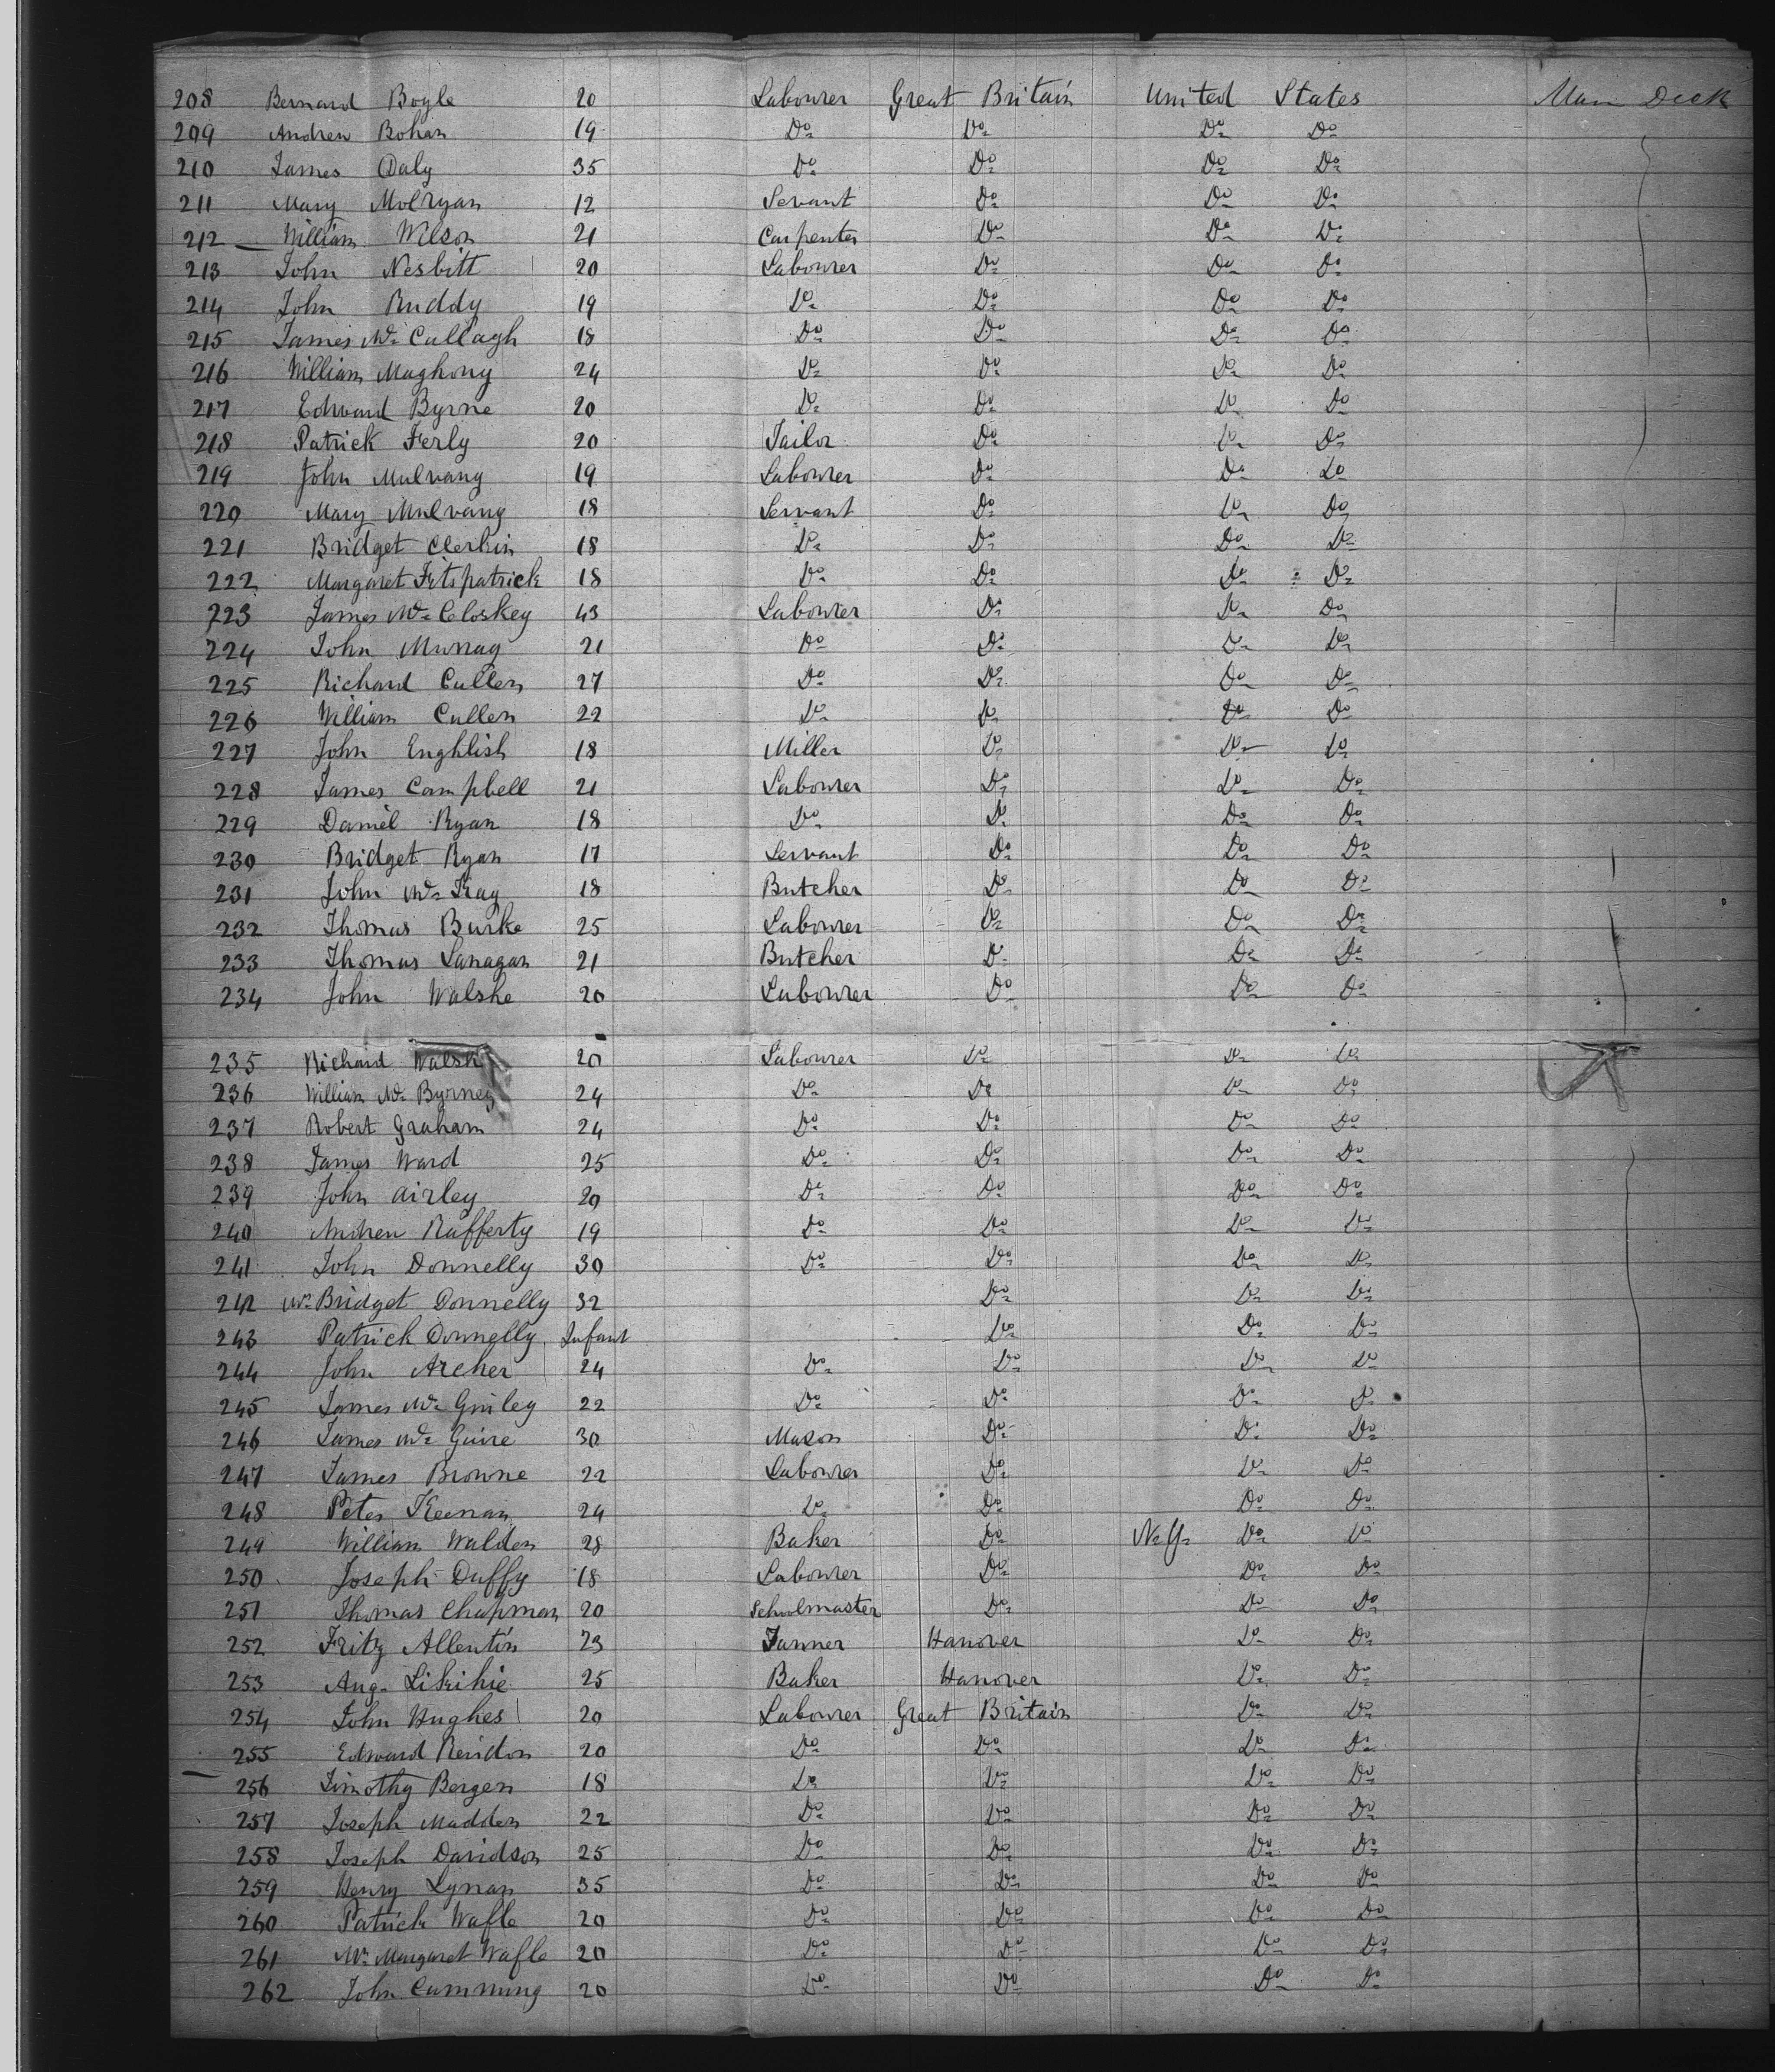 208 Bernard Boyle 20 Labourer Great Britain United States Main Deck
209 Andrew Bohan 19 Do Do Do Do
210 James Daly 35 Do Do Do Do
211 Mary Molryan 12 Servant Do Do Do
212 William Wilson 21 Carpenter Do Do Do
213 John Nesbitt 20 Labourer Do Do Do
214 John Ruddy 19 Do Do Do Do
215 James Mc Cullagh 18 Do Do Do Do
216 William Maghony 24 Do Do Do Do
217 Edward Byrne 20 Do Do Do Do
218 Patrick Ferly 20 Tailor Do Do Do
219 John Mulvany 19 Labourer Do Do Do
220 Mary Mulvany 18 Servant Do Do Do
221 Bridget Clerkin 18 Do Do Do Do
222 Margaret Fitspatrick 18 Do Do Do Do
223 James Mc Closkey 43 Labourer Do Do Do
224 John Murray 21 Do Do Do Do
225 Richard Cullen 27 Do Do Do Do
226 William Cullen 22 Do Do Do Do
227 John Enghlish 18 Miller Do Do Do
228 James Campbell 21 Labourer Do Do Do
229 Daniel Ryan 18 Do Do Do Do
230 Bridget Ryan 17 Servant Do Do Do
231 John Mc Kay 18 Butcher Do Do Do
232 Thomas Burke 25 Labourer Do Do Do
233 Thomas Lanagan 21 Butcher Do Do Do
234 John Walshe 20 Labourer Do Do Do
235 Richard Walsh 20 Labourer Do Do Do
236 William Mc Byrney 24 Do Do Do Do
237 Robert Graham 24 Do Do Do Do
238 James Ward 25 Do Do Do Do
239 John Airley 20 Do Do Do Do
240 Andrew Rafferty 19 Do Do Do Do
241 John Donnelly 30 Do Do Do Do
242 Mrs Bridget Donnelly 32 Do Do Do
243 Patrick Donnelly Infant Do Do Do
244 John Archer 24 Do Do Do Do
245 James Mc Ginley 22 Do Do Do Do
246 James Mc Guire 30 Mason Do Do Do
247 James Browne 22 Labourer Do Do Do
248 Peter Keenan 24 Do Do Do Do
249 William Walden 28 Baker Do N.Y. Do Do
250 Joseph Duffy 18 Labourer Do Do Do
251 Thomas Chapman 20 Schoolmaster Do Do Do
252 Fritz Allentin 23 Tanner Hanover Do Do
253 Aug. Likihie 25 Baker Hanover Do Do
254 John Hughes 20 Labourer Great Britain Do Do
255 Edward Reridon 20 Do Do Do Do
256 Timothy Bergen 18 Do Do Do Do
257 Joseph Madden 22 Do Do Do Do
258 Joseph Davidson 25 Do Do Do Do
259 Henry Lynan 35 Do Do Do Do
260 Patrick Wafle 20 Do Do Do Do
261 Mrs Margaret Wafle 20 Do Do Do Do
262 John Cumming 20 Do Do Do Do